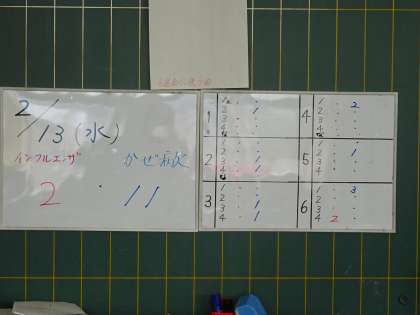 2/13(水)
インフルエンザ かぜ病欠
2 11
1
1
2 1
3
4
2
1
2 1
3 1
4 1
3
1
2 1
3
4 1
4
1 2
2
3
4
5
1
2 1
3
4
6
1 3
2
3
4 2